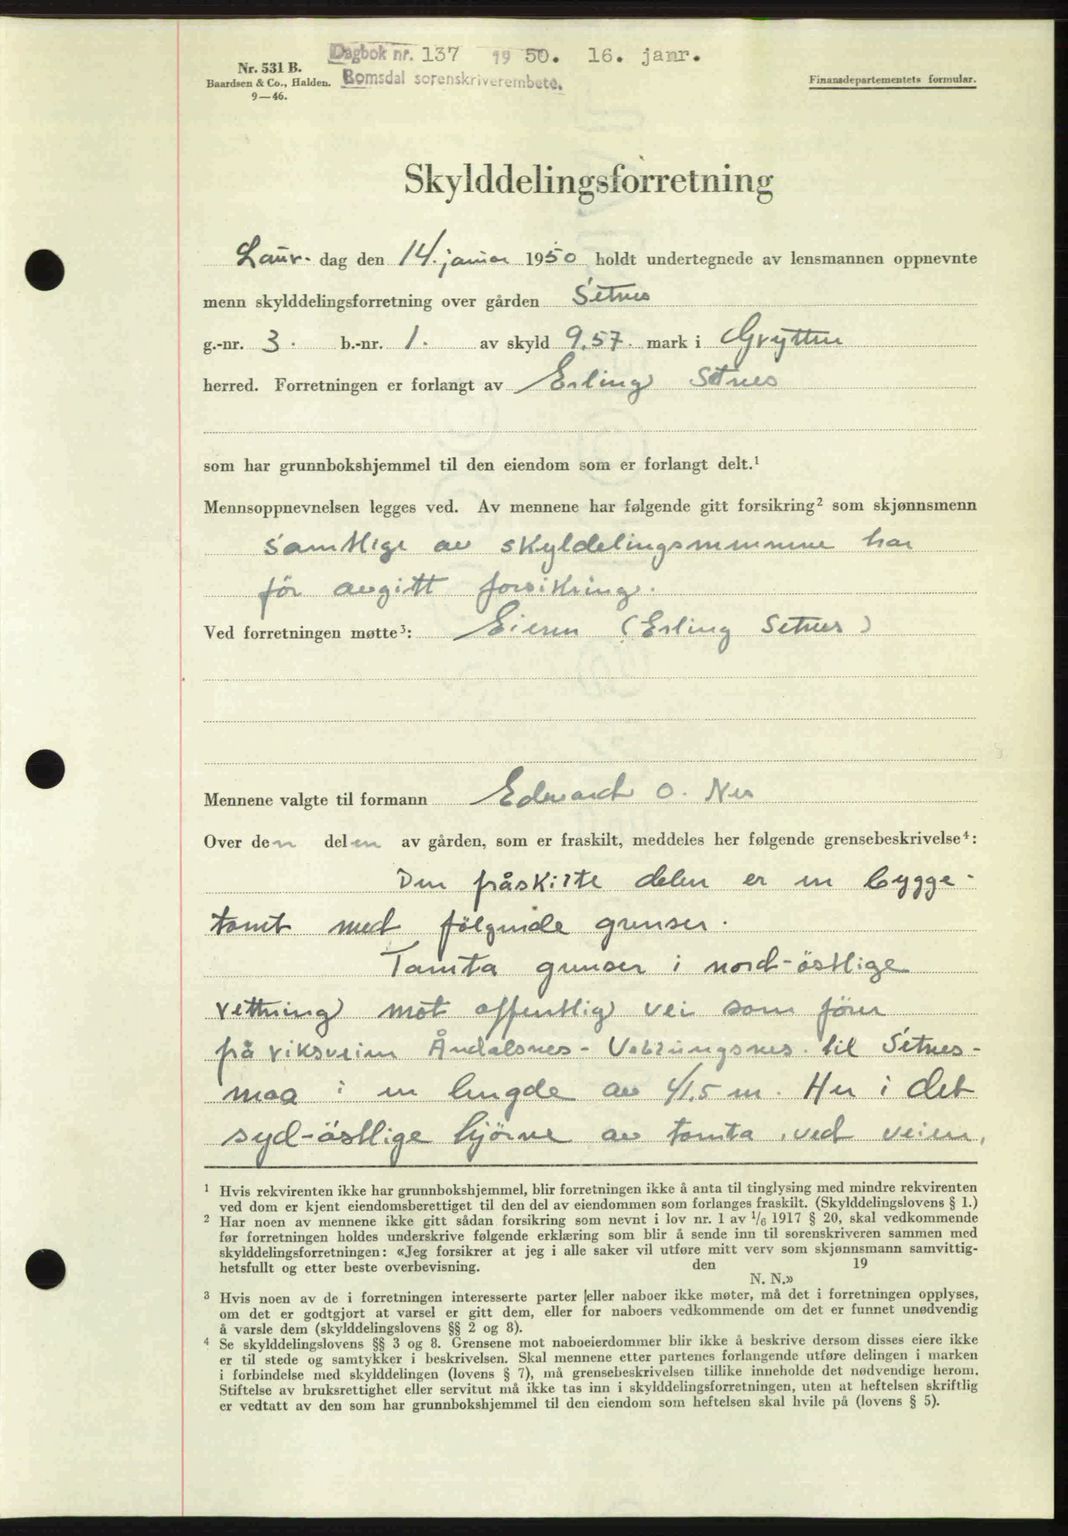 Dagbok nr. 137 1950. 16. janr.
Romsdal sorenskriverembete.
Nr. 531 B.
Baardsen & Co., Halden.
9—46.
Finansdepartementets formular.
Skylddelingsforretning
Laur- dag den 14. januar 1950 holdt undertegnede av lensmannen oppnevnte
menn skylddelingsforretning over gården Setnes
g.-nr. 3. b.-nr. 1. av skyld 9.57. mark i Grytten
herred. Forretningen er forlangt av Erling Setnes
som har grunnbokshjemmel til den eiendom som er forlangt delt.¹
Mennsoppnevnelsen legges ved. Av mennene har følgende gitt forsikring² som skjønnsmenn
samtlige av skyldelingsmennene har
för avgitt forsikring.
Ved forretningen møtte³: Eieren (Erling Setnes)
Mennene valgte til formann Edvard O. Nes
Over den delen av gården, som er fraskilt, meddeles her følgende grensebeskrivelse⁴:
Den fråskilte delen er en bygge-
tomt med fölgende grenser.
Tomta grenser i nord-östlige
rettning mot offentlig vei som förer
frå riksveien Åndalsnes - Veblungsnes til Setnes-
moa i en lengde av 41.5 m. Her i det
syd-östlige hjörne av tomta, ved veien,
¹ Hvis rekvirenten ikke har grunnbokshjemmel, blir forretningen ikke å anta til tinglysing med mindre rekvirenten
ved dom er kjent eiendomsberettiget til den del av eiendommen som forlanges fraskilt. (Skylddelingslovens § 1.)
² Har noen av mennene ikke gitt sådan forsikring som nevnt i lov nr. 1 av 1/6 1917 § 20, skal vedkommende
før forretningen holdes underskrive følgende erklæring som blir å sende inn til sorenskriveren sammen med
skylddelingsforretningen: «Jeg forsikrer at jeg i alle saker vil utføre mitt verv som skjønnsmann samvittig-
hetsfullt og etter beste overbevisning. den 19
N. N.»
³ Hvis noen av de i forretningen interesserte parter eller naboer ikke møter, må det i forretningen opplyses,
om det er godtgjort at varsel er gitt dem, eller for naboers vedkommende om det er funnet unødvendig
å varsle dem (skylddelingslovens §§ 2 og 8).
⁴ Se skylddelingslovens §§ 3 og 8. Grensene mot naboeierdommer blir ikke å beskrive dersom disses eiere ikke
er til stede og samtykker i beskrivelsen. Skal mennene etter partenes forlangende utføre delingen i marken
i forbindelse med skylddelingen (lovens § 7), må grensebeskrivelsen tillike inneholde det nødvendige herom.
Stiftelse av bruksrettighet eller servitut må ikke tas inn i skylddelingsforretningen, uten at heftelsen skriftlig
er vedtatt av den som har grunnbokshjemmel til den eiendom som heftelsen skal hvile på (lovens § 5).